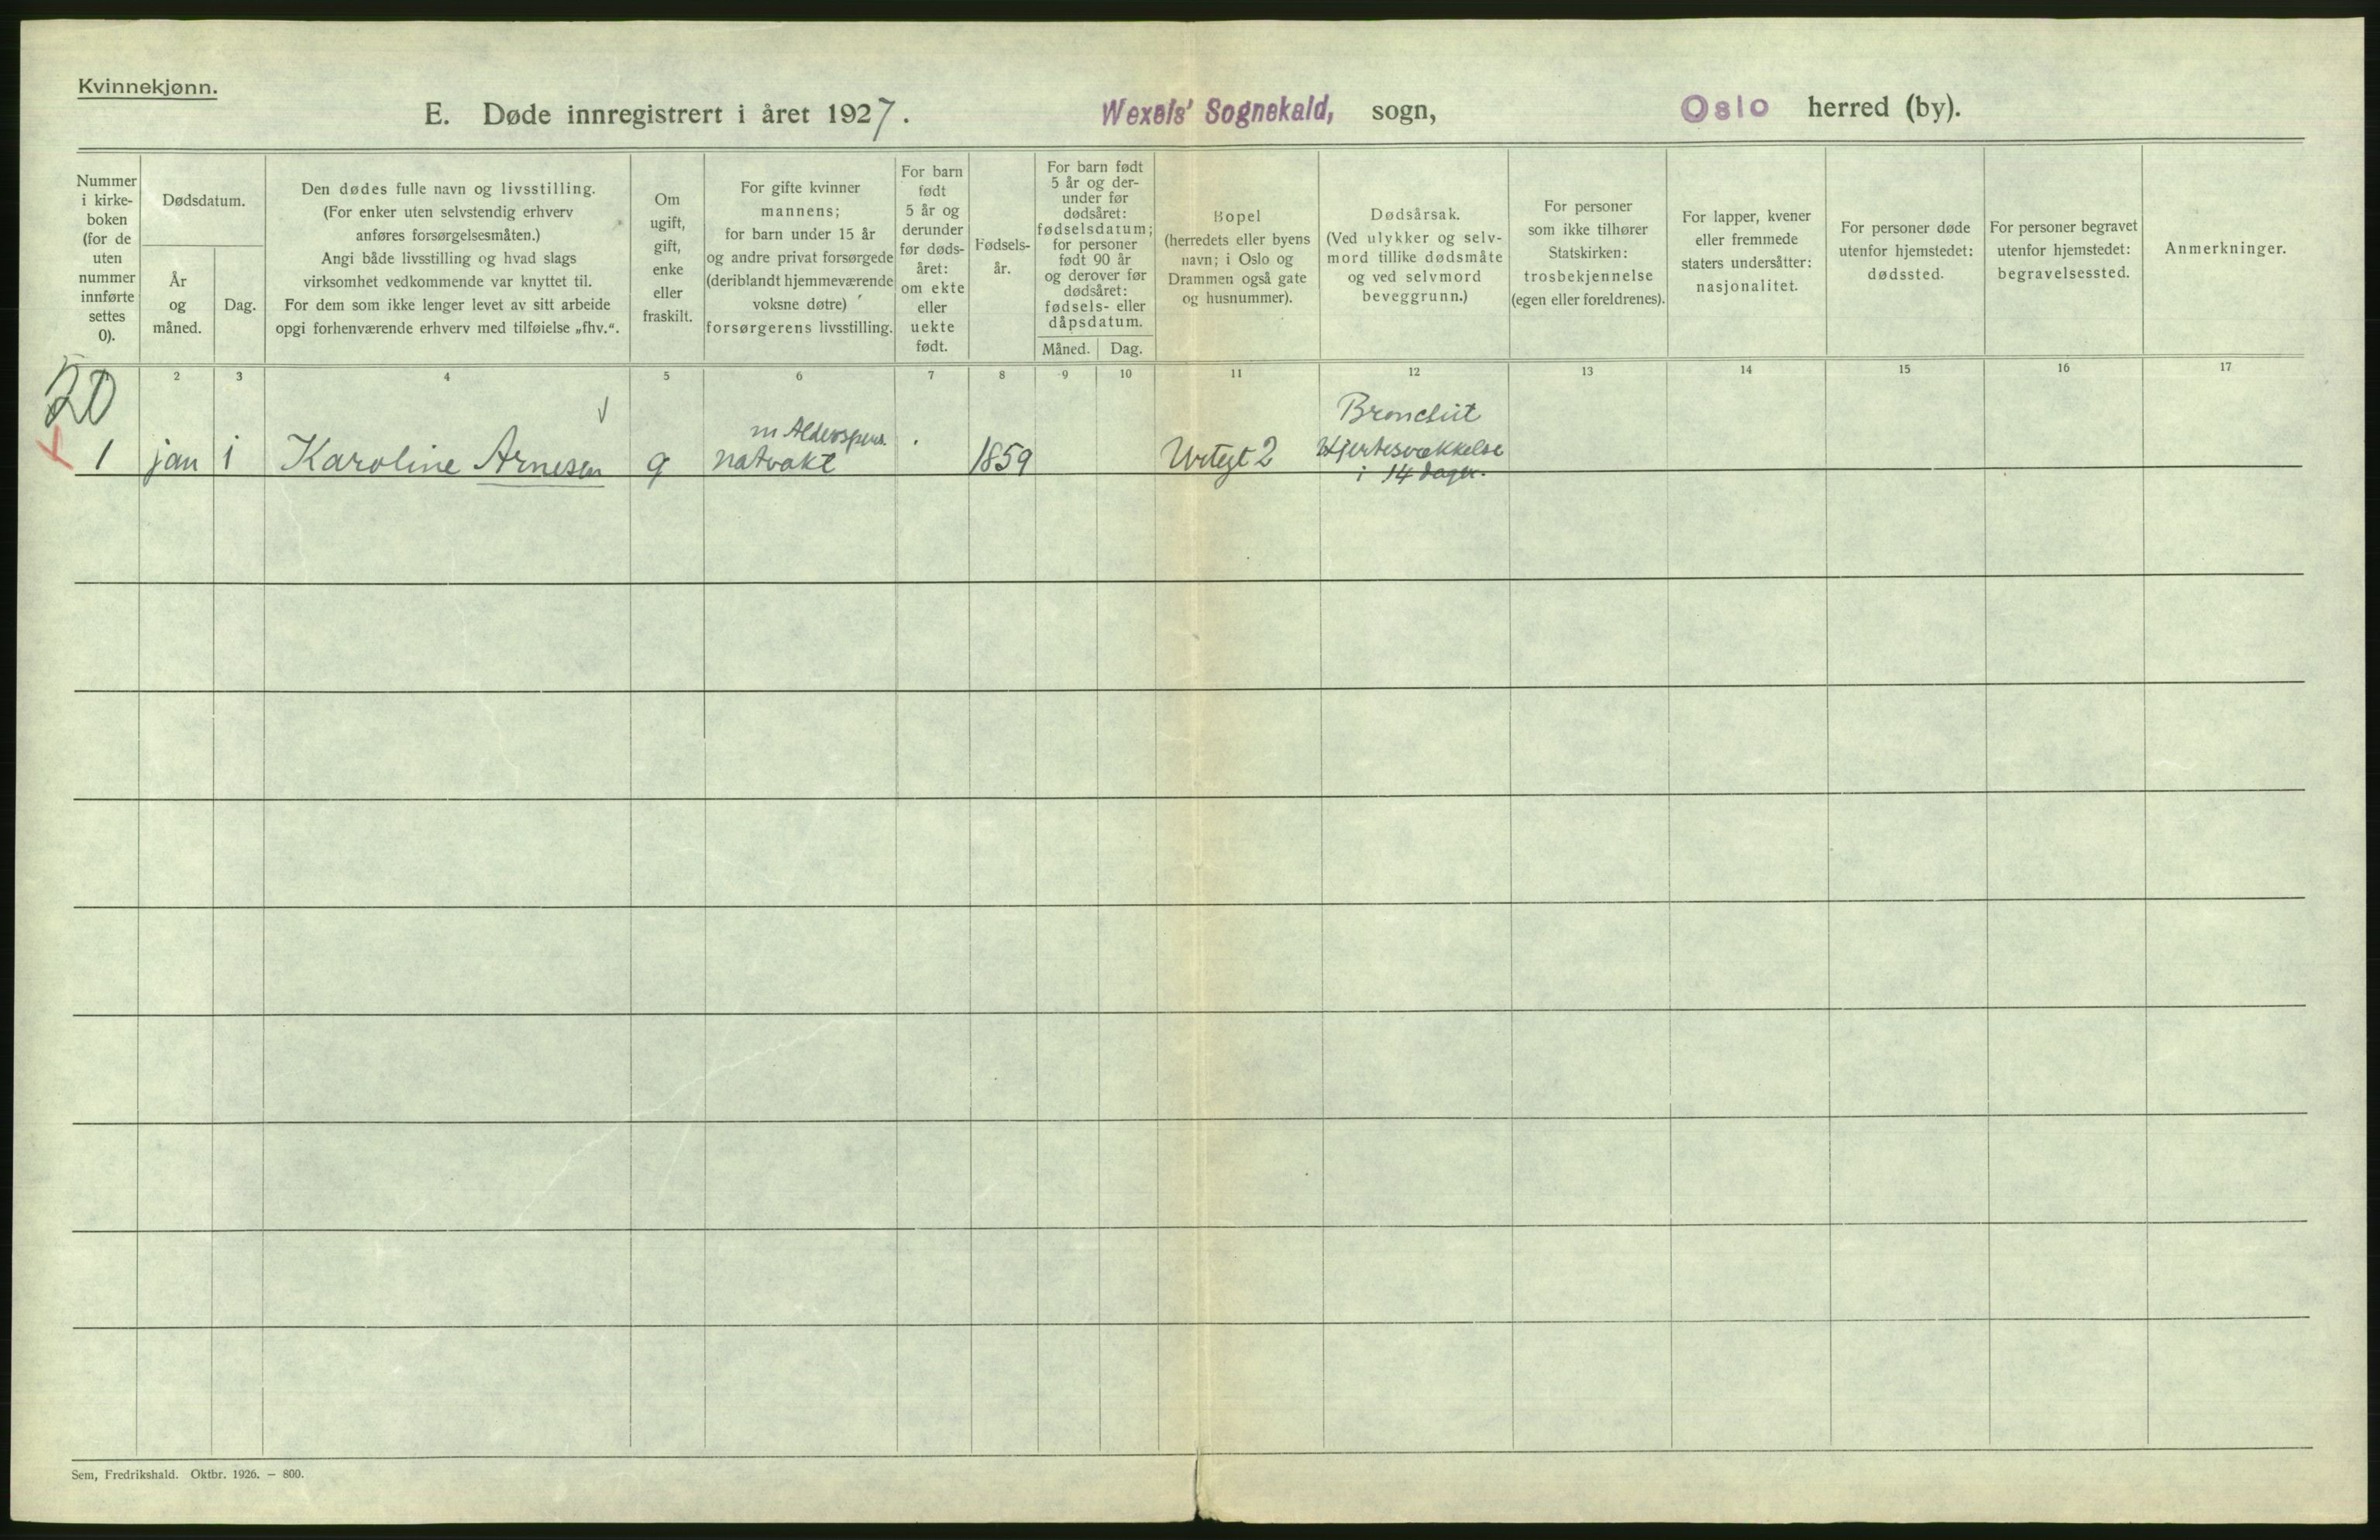 Kvinnekjønn.
E. Døde innregistrert i året 1927. Wexels' Sognekald, sogn, Oslo herred (by).
Nummer
i kirke-
boken
(for de
uten
nummer
innførte
settes
0).
Dødsdatum.
År
og
måned.
Dag.
Den dødes fulle navn og livsstilling.
(For enker uten selvstendig erhverv
anføres forsørgelsesmåten.)
Angi både livsstilling og hvad slags
virksomhet vedkommende var knyttet til.
For dem som ikke lenger levet av sitt arbeide
opgi forhenværende erhverv med tilføielse „fhv.“.
Om
ugift,
gift,
enke
eller
fraskilt.
For gifte kvinner
mannens;
for barn under 15 år
og andre privat forsørgede
(deriblandt hjemmeværende
voksne døtre)
forsørgerens livsstilling.
For barn
født
5 år og
derunder
før døds-
året:
om ekte
eller
uekte
født.
Fødsels-
år.
For barn født
5 år og der-
under før
dødsåret:
fødselsdatum;
for personer
født 90 år
og derover før
dødsåret:
fødsels- eller
dåpsdatum.
Måned. Dag.
Bopel
(herredets eller byens
navn; i Oslo og
Drammen også gate
og husnummer).
Dødsårsak.
(Ved ulykker og selv-
mord tillike dødsmåte
og ved selvmord
beveggrunn.)
For personer
som ikke tilhører
Statskirken:
trosbekjennelse
(egen eller foreldrenes).
For lapper, kvener
eller fremmede
staters undersåtter:
nasjonalitet.
For personer døde
utenfor hjemstedet:
dødssted.
For personer begravet
utenfor hjemstedet:
begravelsessted.
Anmerkninger.
2 3 4 5 6 7 8 9 10 11 12 13 14 15 16 17
20
Bronchit
m Alderspens.
1 jan 1 Karoline Arnesen g natvakt 1859 Urtegt 2 Hjertesvækkelse
i 14 dager.
Sem, Fredrikshald. Oktbr. 1926. — 800.